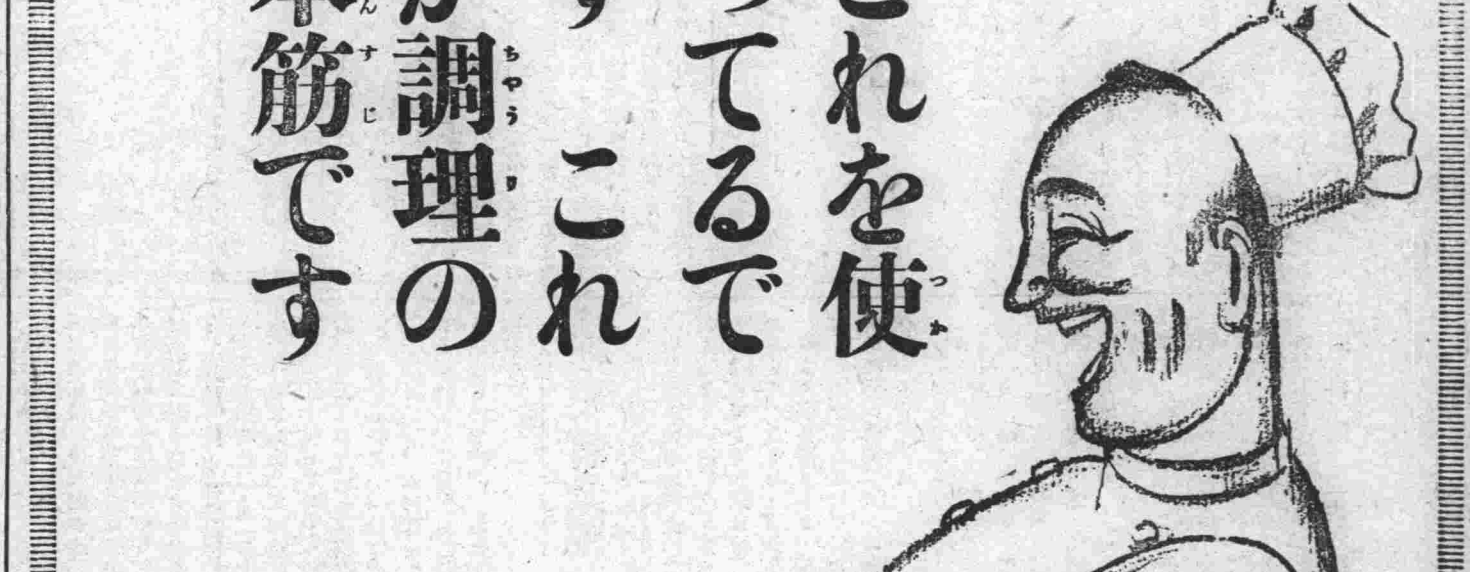 れを使
ってるで
す これ
が調理の
本筋です